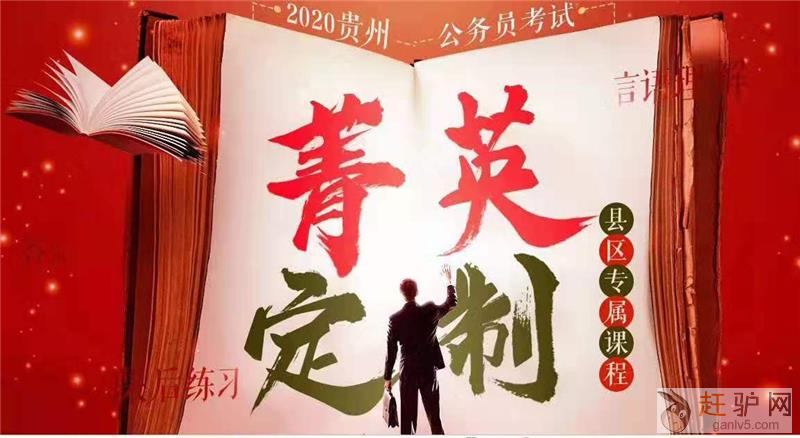 2020贵州 公务员考试
言语理解
菁英
定制
县区专属课程
后练习
赶驴网
ganlv5.com